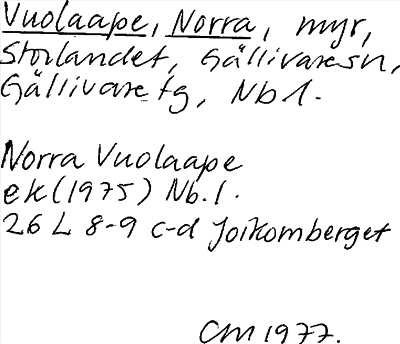 Vuolaape, Norra, myr,
Storlandet, Gällivare sn,
Gällivare tg, Nb l.
Norra Vuolaape
ek (1975) Nb. l.
26 L 8-9 c-d Joikomberget
CM 1977.